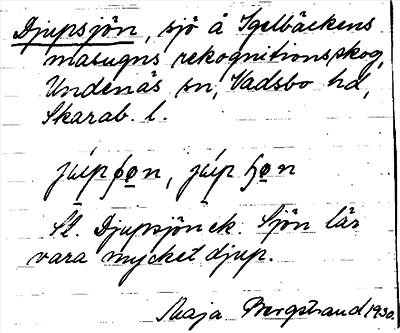 Djupsjön, sjö å Igelbäckens
masugns rekognitionsskog,
Undenäs sn, Vadsbo hd,
Skarab. l.
St. Djupsjön ek. Sjön lär
vara mycket djup.
Maja Bergstrand 1930.